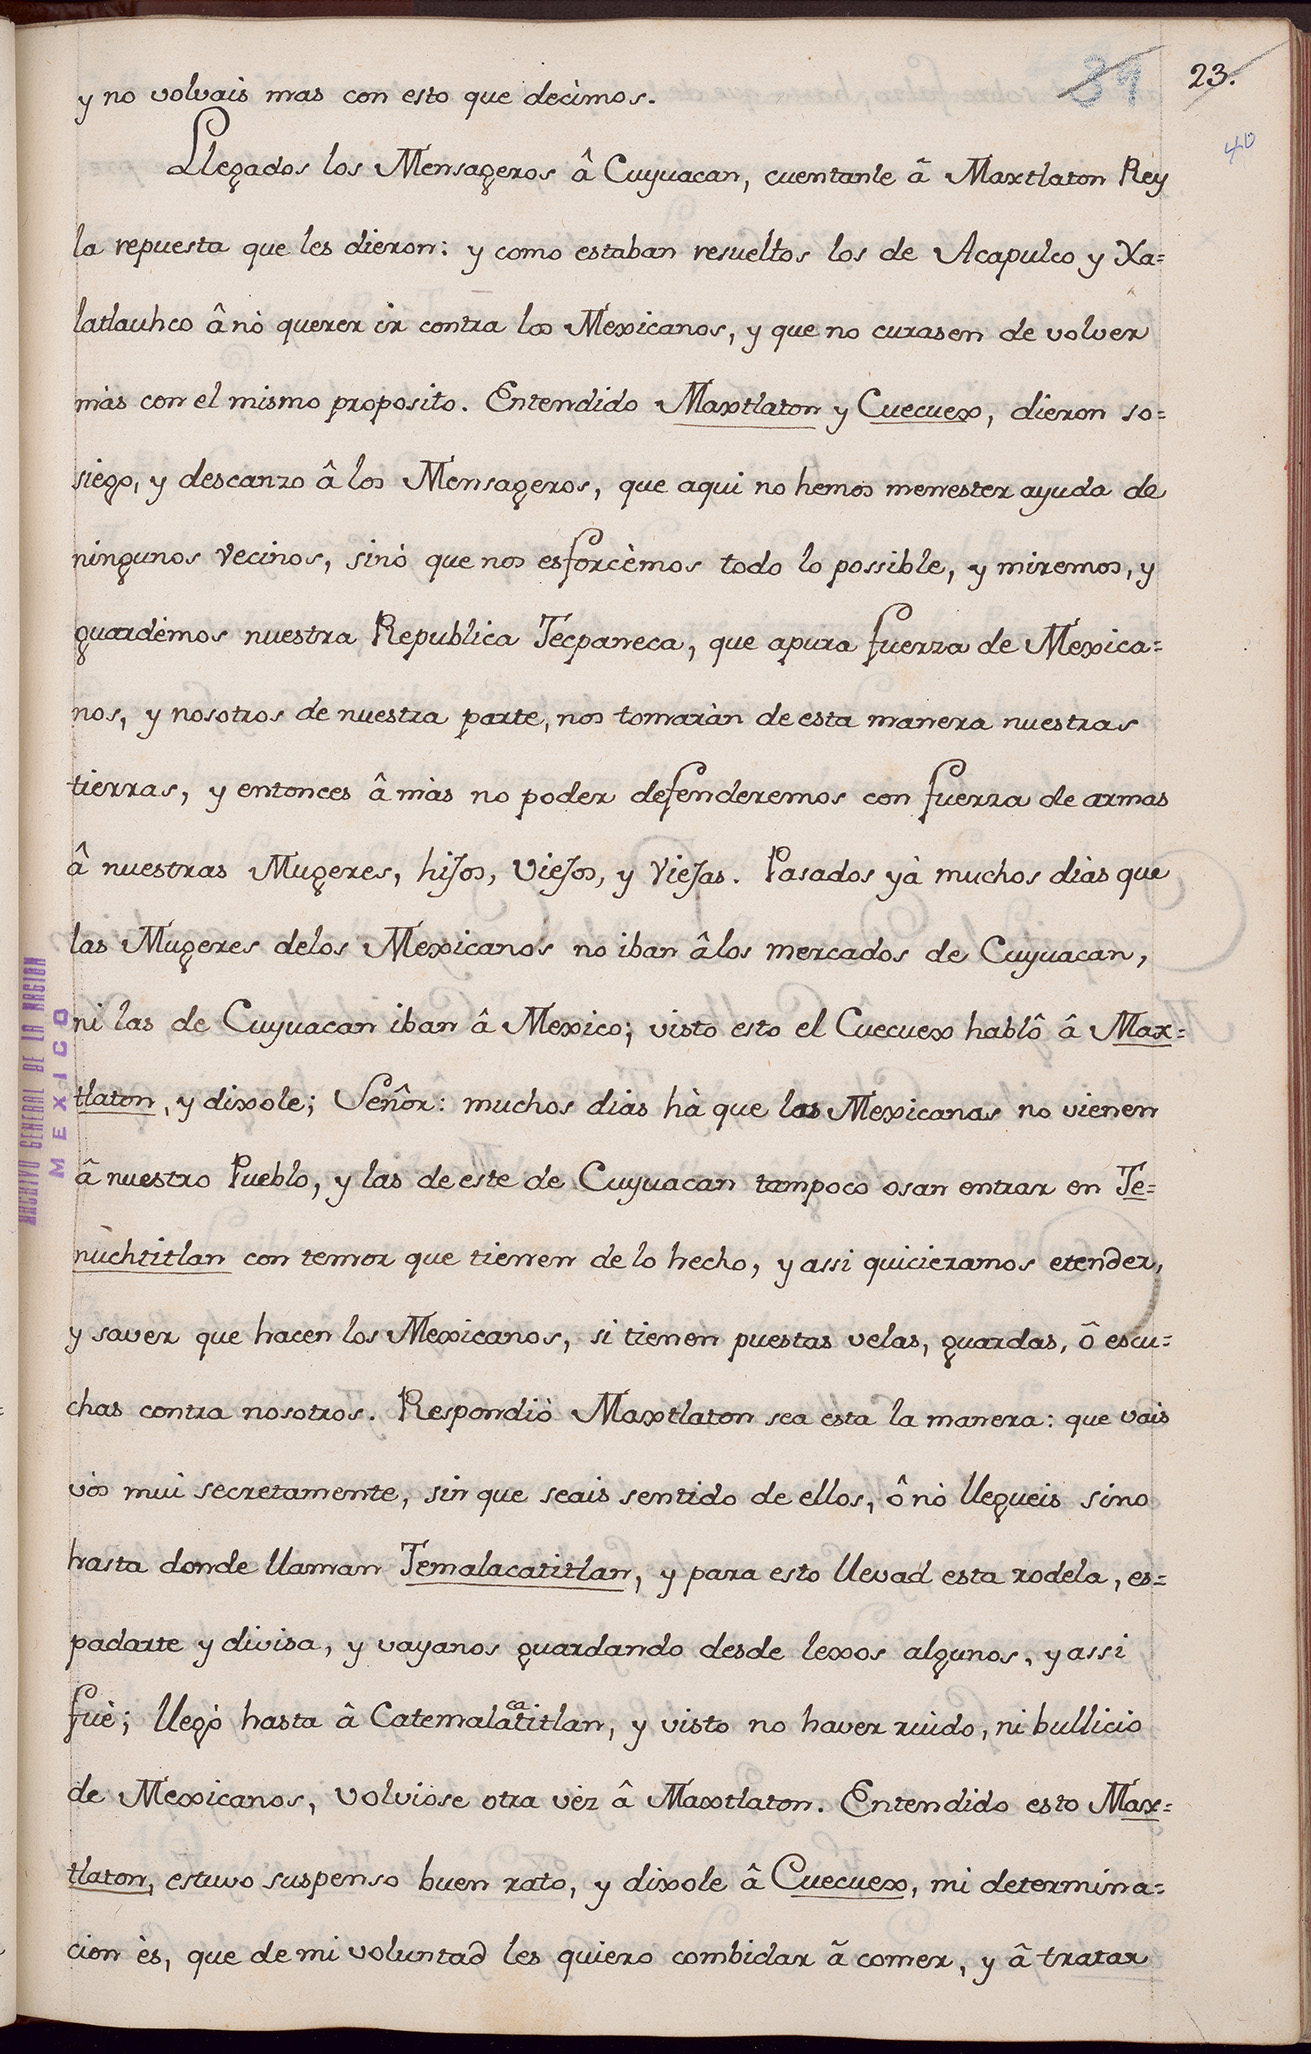 39 23.
40
y no volvais mas con esto que decìmos.
Llegados los Mensageros â Cuyuacan, cuentanle â Maxtlaton Rey
la repuesta que les dieron: y como estaban resueltos los de Acapulco y Xa=
latlauhco â nò querer ir contra los Mexicanos, y que no curasen de volver
màs con el mismo proposito. Entendido Maxtlaton y Cuecuex, dieron so=
siego, y descanzo â los Mensageros, que aqui no hemos menester ayuda de
ningunos Vecinos, sinò que nos esforcèmos todo lo possible, y miremos, y
guardèmos nuestra Republica Tecpaneca, que apura fuerza de Mexica=
nos, y nosotros de nuestra parte, nos tomaràn de esta manera nuestras
tierras, y entonces â màs no poder defenderemos con fuerza de armas
â nuestras Mugeres, hijos, Viejos, y Viejas. Pasados yà muchos dias que
las Mugeres delos Mexicanos no iban âlos mercados de Cuyuacan,
ni las de Cuyuacan iban â Mexico; visto esto el Cuecuex hablô â Max=
tlaton, y dixole; Señor: muchos dias hà que las Mexicanas no vienen
â nuestro Pueblo, y las de este de Cuyuacan tampoco osan entrar en Te=
nùchtitlan con temor que tienen de lo hecho, y assi quicieramos etender,
y saver que hacen los Mexicanos, si tienen puestas velas, guardas, ô escu=
chas contra nosotros. Respondiò Maxtlaton sea esta la manera: que vais
vòs mui secretamente, sin que seais sentido de ellos, ô nò llegueis sino
hasta donde llaman Temalacatitlan, y para esto llevad esta rodela, es=
padarte y divisa, y vayanos guardando desde lexos algunos, y assi
fuè; llegò hasta â Catemalacatitlan, y visto no haver ruido, ni bullicio
de Mexicanos, volviòse otra vèz â Maxtlaton. Entendido esto Max=
tlaton, estuvo suspenso buen rato, y dixole â Cuecuex, mi determina=
cion ès, que de mi voluntad les quiero combidar â comer, y â tratar
ARCHIVO GENERAL DE LA NACION
MEXICO